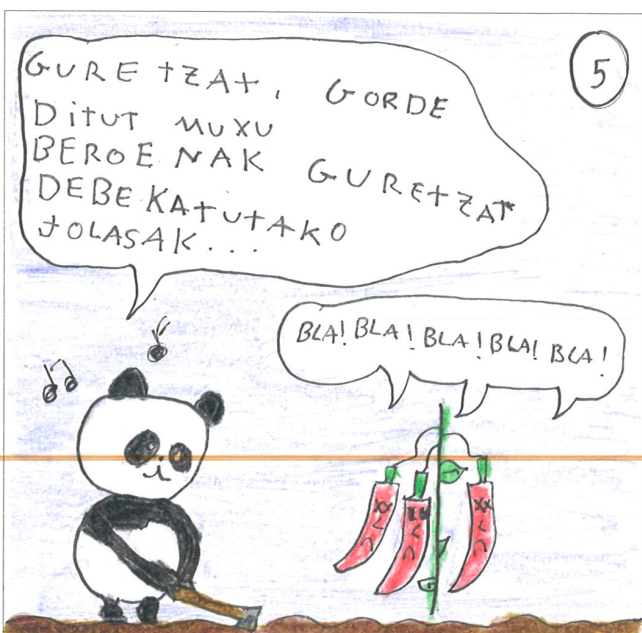 GURETZAT, GORDE
DITUT MUXU
BEROENAK GURETZAT
DEBEKATUTAKO
JOLASAK...
5
BLA! BLA! BLA! BLA! BLA!